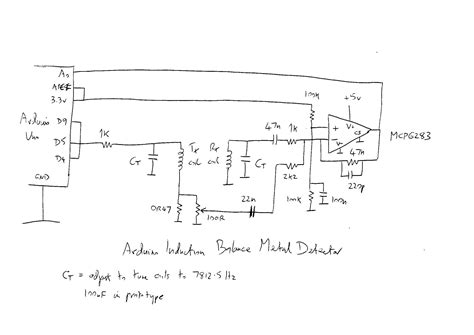 A0
AREF
3.3v
Arduino
Uno
D9
D5
D4
GND
1K
CT
Tx
coil
Rx
coil
CT
47n
1K
2k2
100k
+5v
V+
CS
V-
MCP6283
47n
220p
100k
100n
0R47
100R
22n
Arduino Induction Balance Metal Detector
CT = adjust to tune coils to 7812.5 Hz
100nF in prototype